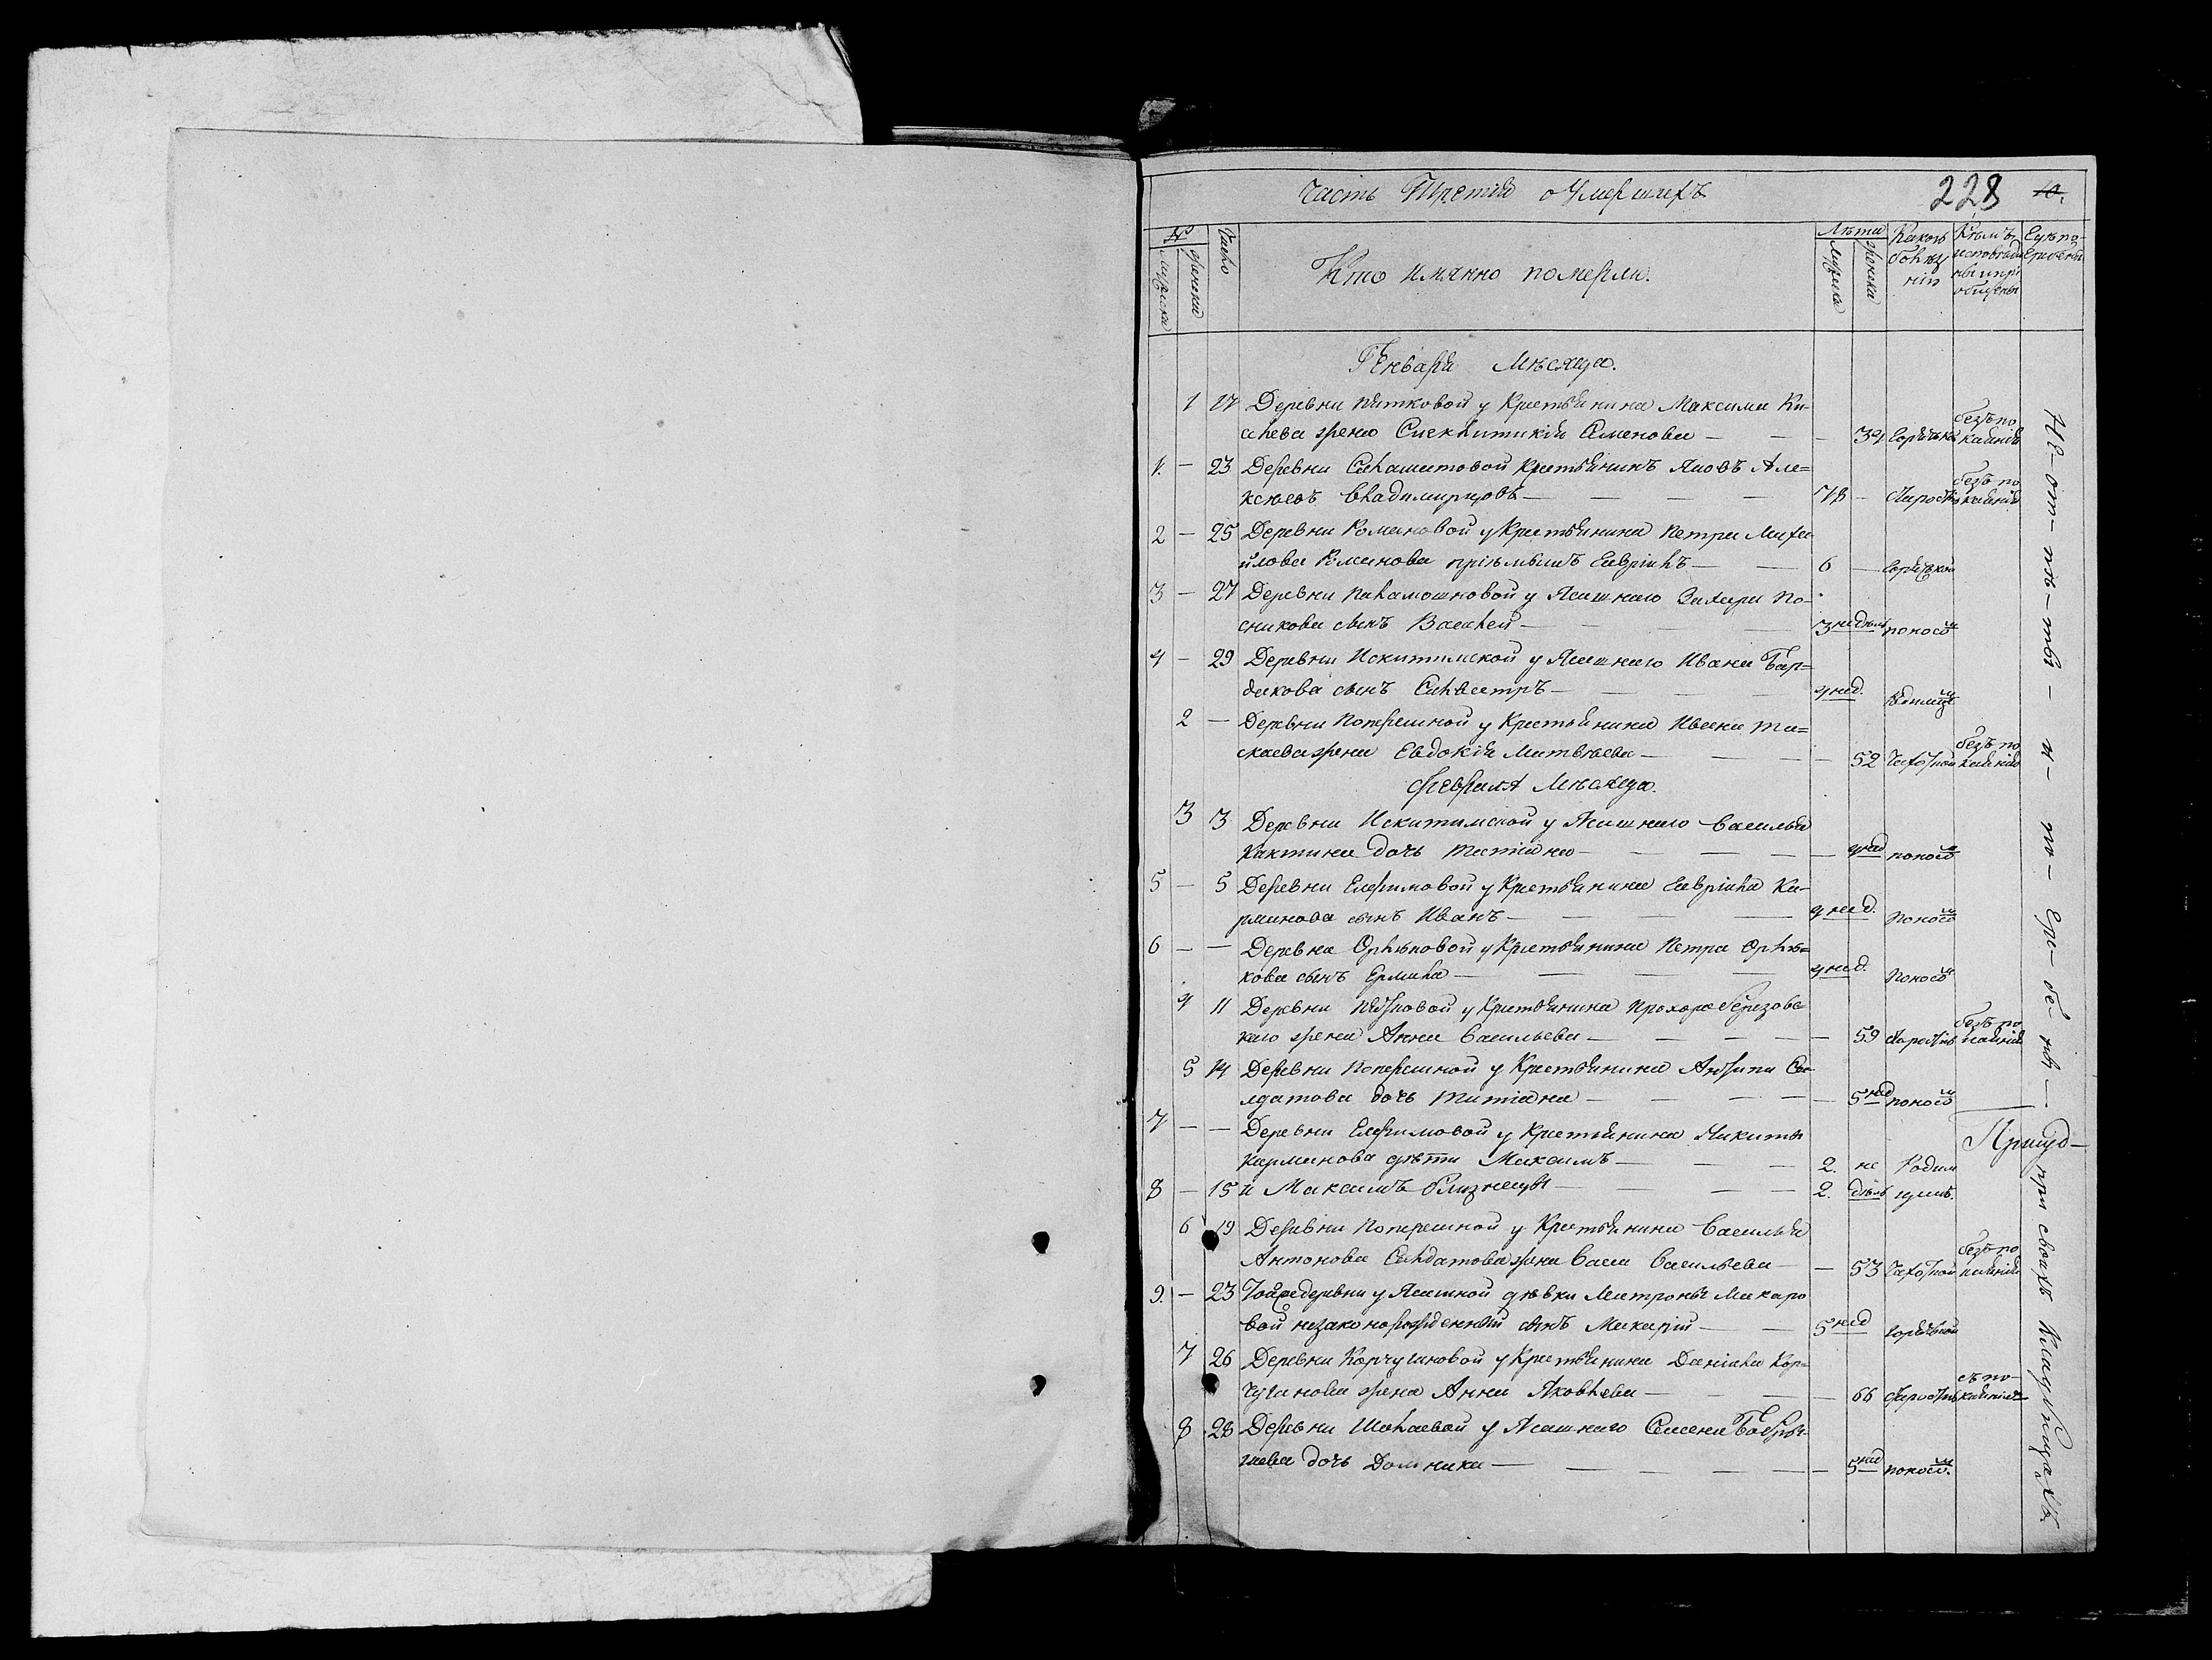 Часть Третія о Умершихъ
228
10.
№
мужеска
женска
Число
Кто имянно померли.
Лѣта
мужска
женска
Какою болѣзнію
Кѣмъ исповѣданы и пріобщены
Гдѣ погребены
Генваря Мѣсяца.
1 17 Деревни Пятковой у Крестьянина Максима Ки-
жена Семенова — — — 34 горячкой безъ покаянія
1. — 23 Деревни Крестьянинъ Яковъ Але=
ксѣевъ Владимировъ — — — — 78 — старостію безъ покаянія
2 — 25 Деревни Романовой у Крестьянина Петра Миха
йлова Романова пріемышъ Гаврiилъ — — 6 — горячкой
3 — 27 Деревни Паламошновой у Ясашнаго Захара По-
сникова сынъ Василей — — — 3 недѣль поносомъ
4 — 29 Деревни Искитимской у Ясашнаго Ивана Бар=
дакова сынъ Силвестръ — — — 4 нед. родимцемъ
2 — Деревни Поперешной у Крестьянина Ивана Ти=
жена Евдокія Матвѣева — — — 52 чахоткой безъ покаянія
Февраля Мѣсяца.
3 3 Деревни Искитимской у Ясашнаго Василья
Кактина дочь Татіана — — — — 4 нед поносомъ
5 — 5 Деревни Елгиновой у Крестьянина Гавріила Ка-
рманова сынъ Иванъ — — — 4 нед. поносомъ
6 — — Деревна Орлюковой у Крестьянина Петра Орлю=
кова сынъ Ермила — — — 4 нед. поносомъ
4 11 Деревни Пятковой у Крестьянина Прохора Березовс
каго жена Анна Васильева — — — — 59 старостію безъ покаянія
5 14 Деревни Поперешной у Крестьянина Антипа Со-
лдатова дочь Татіана — — — — 5 нед поносомъ
7 — — Деревни Елгиновой у Крестьянина Никиты
Карманова дѣти Максимъ — — — 2. не Родим
8 — 15 и Максимъ близнецы — — — 2. дѣль цемъ.
6 19 Деревни Поперешной у Крестьянина Василья
Антонова Солдатова жена Васса Васильева — — 53 чахоткой безъ покаянія
9. — 23 Той же деревни у Ясашной дѣвки Матроны Макаро
вой незаконорожденный сынъ Макарій — — 5 нед горячкой
7 26 Деревни Корчугановой у Крестьянина Даніила Кор=
чуганова жена Анна Яковлева — — — — 66 старостію съ покаяніемъ
8 28 Деревни Шалаевой у Ясашнаго Семена
дочь Домника — — — — — 5 нед поносомъ.
Не-от-пѣ-ты - и - по- гре- бе- ны —
Приход-
при своихъ Кладбищахъ.